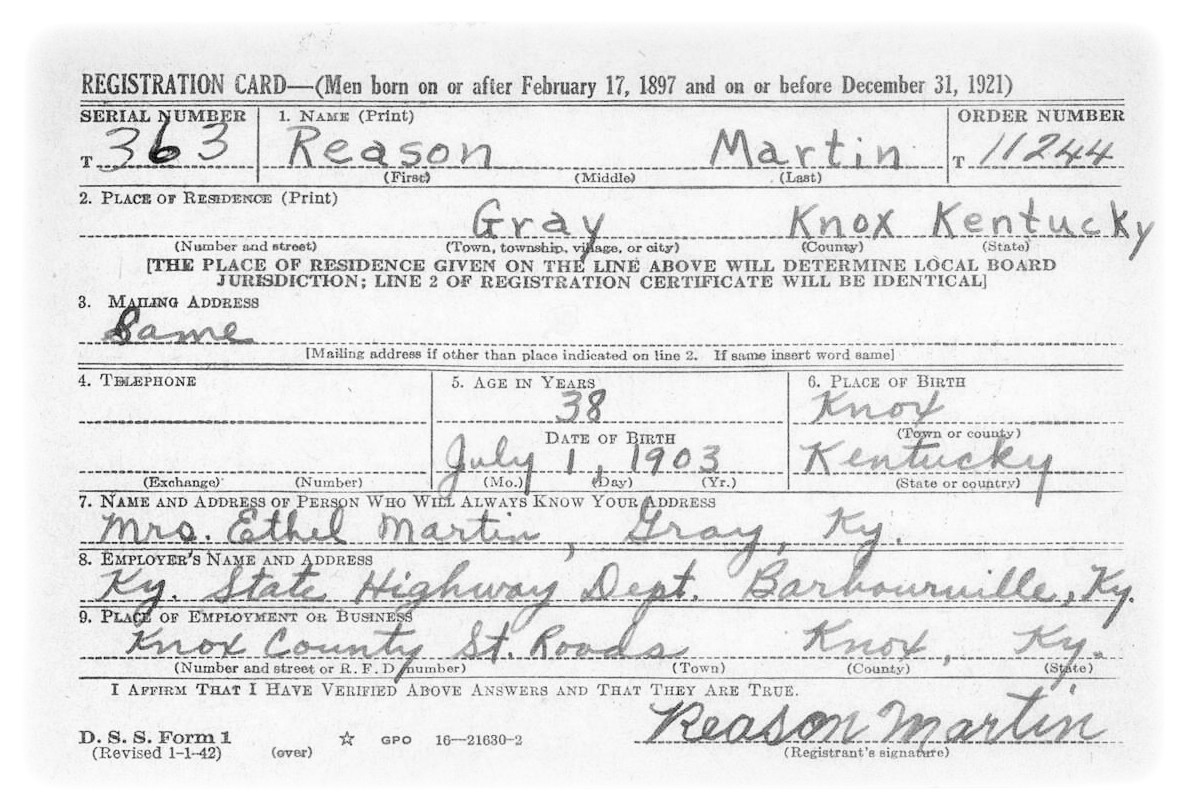 REGISTRATION CARD—(Men born on or after February 17, 1897 and on or before December 31, 1921)
SERIAL NUMBER 1. NAME (Print) ORDER NUMBER
T 363 Reason Martin T 11244
(First) (Middle) (Last)
2. PLACE OF RESIDENCE (Print)
Gray Knox Kentucky
(Number and street) (Town, township, village, or city) (County) (State)
[THE PLACE OF RESIDENCE GIVEN ON THE LINE ABOVE WILL DETERMINE LOCAL BOARD
JURISDICTION; LINE 2 OF REGISTRATION CERTIFICATE WILL BE IDENTICAL]
3. MAILING ADDRESS
Same
[Mailing address if other than place indicated on line 2. If same insert word same]
4. TELEPHONE 5. AGE IN YEARS 6. PLACE OF BIRTH
38 Knox
DATE OF BIRTH (Town or county)
July 1, 1903 Kentucky
(Exchange) (Number) (Mo.) (Day) (Yr.) (State or country)
7. NAME AND ADDRESS OF PERSON WHO WILL ALWAYS KNOW YOUR ADDRESS
Mrs. Ethel Martin, Gray, Ky.
8. EMPLOYER'S NAME AND ADDRESS
Ky. State Highway Dept. Barbourville, Ky.
9. PLACE OF EMPLOYMENT OR BUSINESS
Knox County St. Roads Knox, Ky.
(Number and street or R. F. D. number) (Town) (County) (State)
I AFFIRM THAT I HAVE VERIFIED ABOVE ANSWERS AND THAT THEY ARE TRUE.
Reason Martin
D. S. S. Form 1
(Revised 1-1-42) (over) ☆ GPO 16—21630-2 (Registrant's signature)